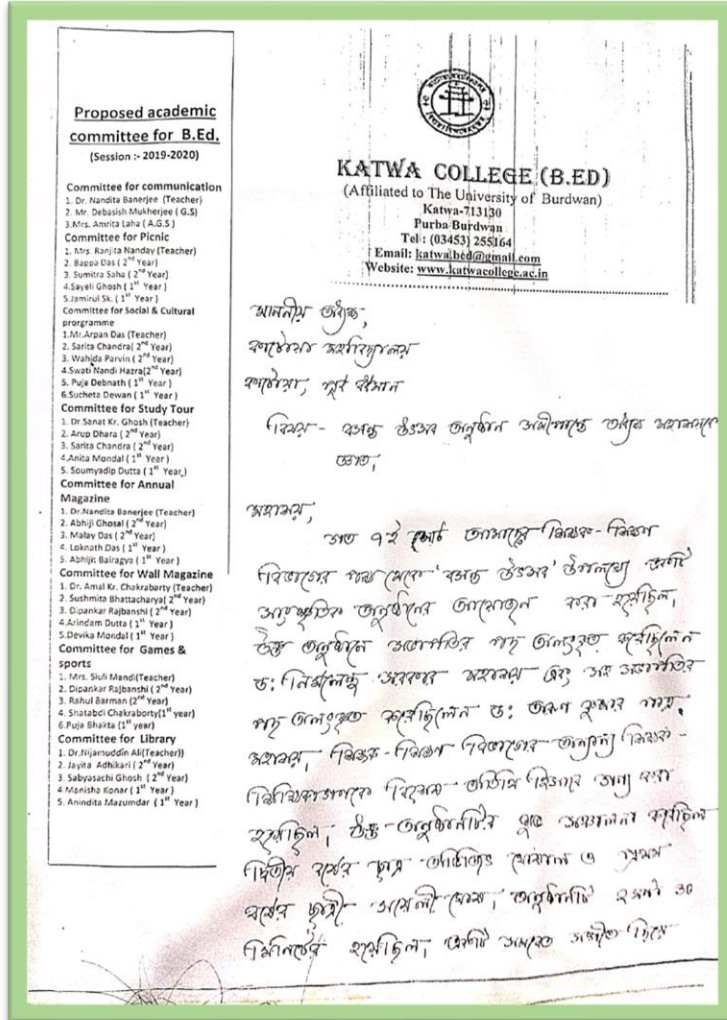 Proposed academic
committee for B.Ed.
(Session :- 2019-2020)
Committee for communication
1. Dr. Nandita Banerjee (Teacher)
2. Mr. Debasish Mukherjee ( G.S)
3.Mrs. Amrita Laha ( A.G.S )
Committee for Picnic
1. Mrs. Ranjita Nanday (Teacher)
2. Bappa Das ( 2nd Year)
3. Sumitra Saha ( 2nd Year)
4.Sayeli Ghosh ( 1st Year )
5.Jamirul Sk. ( 1st Year )
Committee for Social & Cultural
prorgramme
1.Mr.Arpan Das (Teacher)
2. Sarita Chandra( 2nd Year)
3. Wahida Parvin ( 2nd Year)
4.Swati Nandi Hazra(2nd Year)
5. Puja Debnath ( 1st Year )
6.Sucheta Dewan ( 1st Year )
Committee for Study Tour
1. Dr.Sanat Kr. Ghosh (Teacher)
2. Arup Dhara ( 2nd Year)
3. Sarita Chandra ( 2nd Year)
4.Anita Mondal ( 1st Year )
5. Soumyadip Dutta ( 1st Year )
Committee for Annual
Magazine
1. Dr.Nandita Banerjee (Teacher)
2. Abhiji Ghosal ( 2nd Year)
3. Malay Das ( 2nd Year)
4. Loknath Das ( 1st Year )
5. Abhijit Bairagya ( 1st Year )
Committee for Wall Magazine
1. Dr. Amal Kr. Chakrabarty (Teacher)
2. Sushmita Bhattacharya( 2nd Year)
3. Dipankar Rajbanshi ( 2nd Year)
4.Arindam Dutta ( 1st Year )
5.Devika Mondal ( 1st Year )
Committee for Games &
sports
1. Mrs. Siuli Mandi(Teacher)
2. Dipankar Rajbanshi ( 2nd Year)
3. Rahul Barman (2nd Year)
4. Shatabdi Chakraborty(1st year)
6.Puja Bhakta (1st year)
Committee for Library
1. Dr.Nijamuddin Ali(Teacher))
2. Jayita Adhikari ( 2nd Year)
3. Sabyasachi Ghosh ( 2nd Year)
4.Monisha Konar ( 1st Year )
5. Anindita Mazumdar ( 1st Year )
KATWA COLLEGE (B.ED)
(Affiliated to The University of Burdwan)
Katwa-713130
Purba Burdwan
Tel : (03453) 255164
Email: katwa.bed@gmail.com
Website: www.katwacollege.ac.in
মাননীয় অধ্যক্ষ,
কাটোয়া মহাবিদ্যালয়
কাটোয়া, পূর্ব বর্ধমান
বিষয় - বসন্ত উৎসব অনুষ্ঠান সমীপান্তে অধ্যক্ষ মহাশয়কে
জ্ঞাত,
মহাশয়,
গত ৭ই মার্চ আমাদের শিক্ষক-শিক্ষণ
বিভাগের পক্ষ থেকে 'বসন্ত উৎসব' উপলক্ষ্যে একটি
সাংস্কৃতিক অনুষ্ঠানের আয়োজন করা হয়েছিল,
উক্ত অনুষ্ঠানে সভাপতির পদ অলংকৃত করেছিলেন
ড: নির্মলেন্দু সরকার মহাশয় এবং সহ সভাপতির
পদ অলংকৃত করেছিলেন ড: কুমার
মহাশয়, শিক্ষক-শিক্ষণ বিভাগের অন্যান্য শিক্ষক-
শিক্ষিকাগণকে বিশেষ অতিথি হিসাবে করা
হয়েছিল, উক্ত অনুষ্ঠানটির সঞ্চালনা করেছিল
দ্বিতীয় বর্ষের ছাত্র অভিজিৎ ঘোষাল ও প্রথম
বর্ষের ছাত্রী সায়েলী ঘোষ, অনুষ্ঠানটি ২ ঘন্টা ৩০
মিনিটের হয়েছিল, একটি সমবেত সঙ্গীত দিয়ে